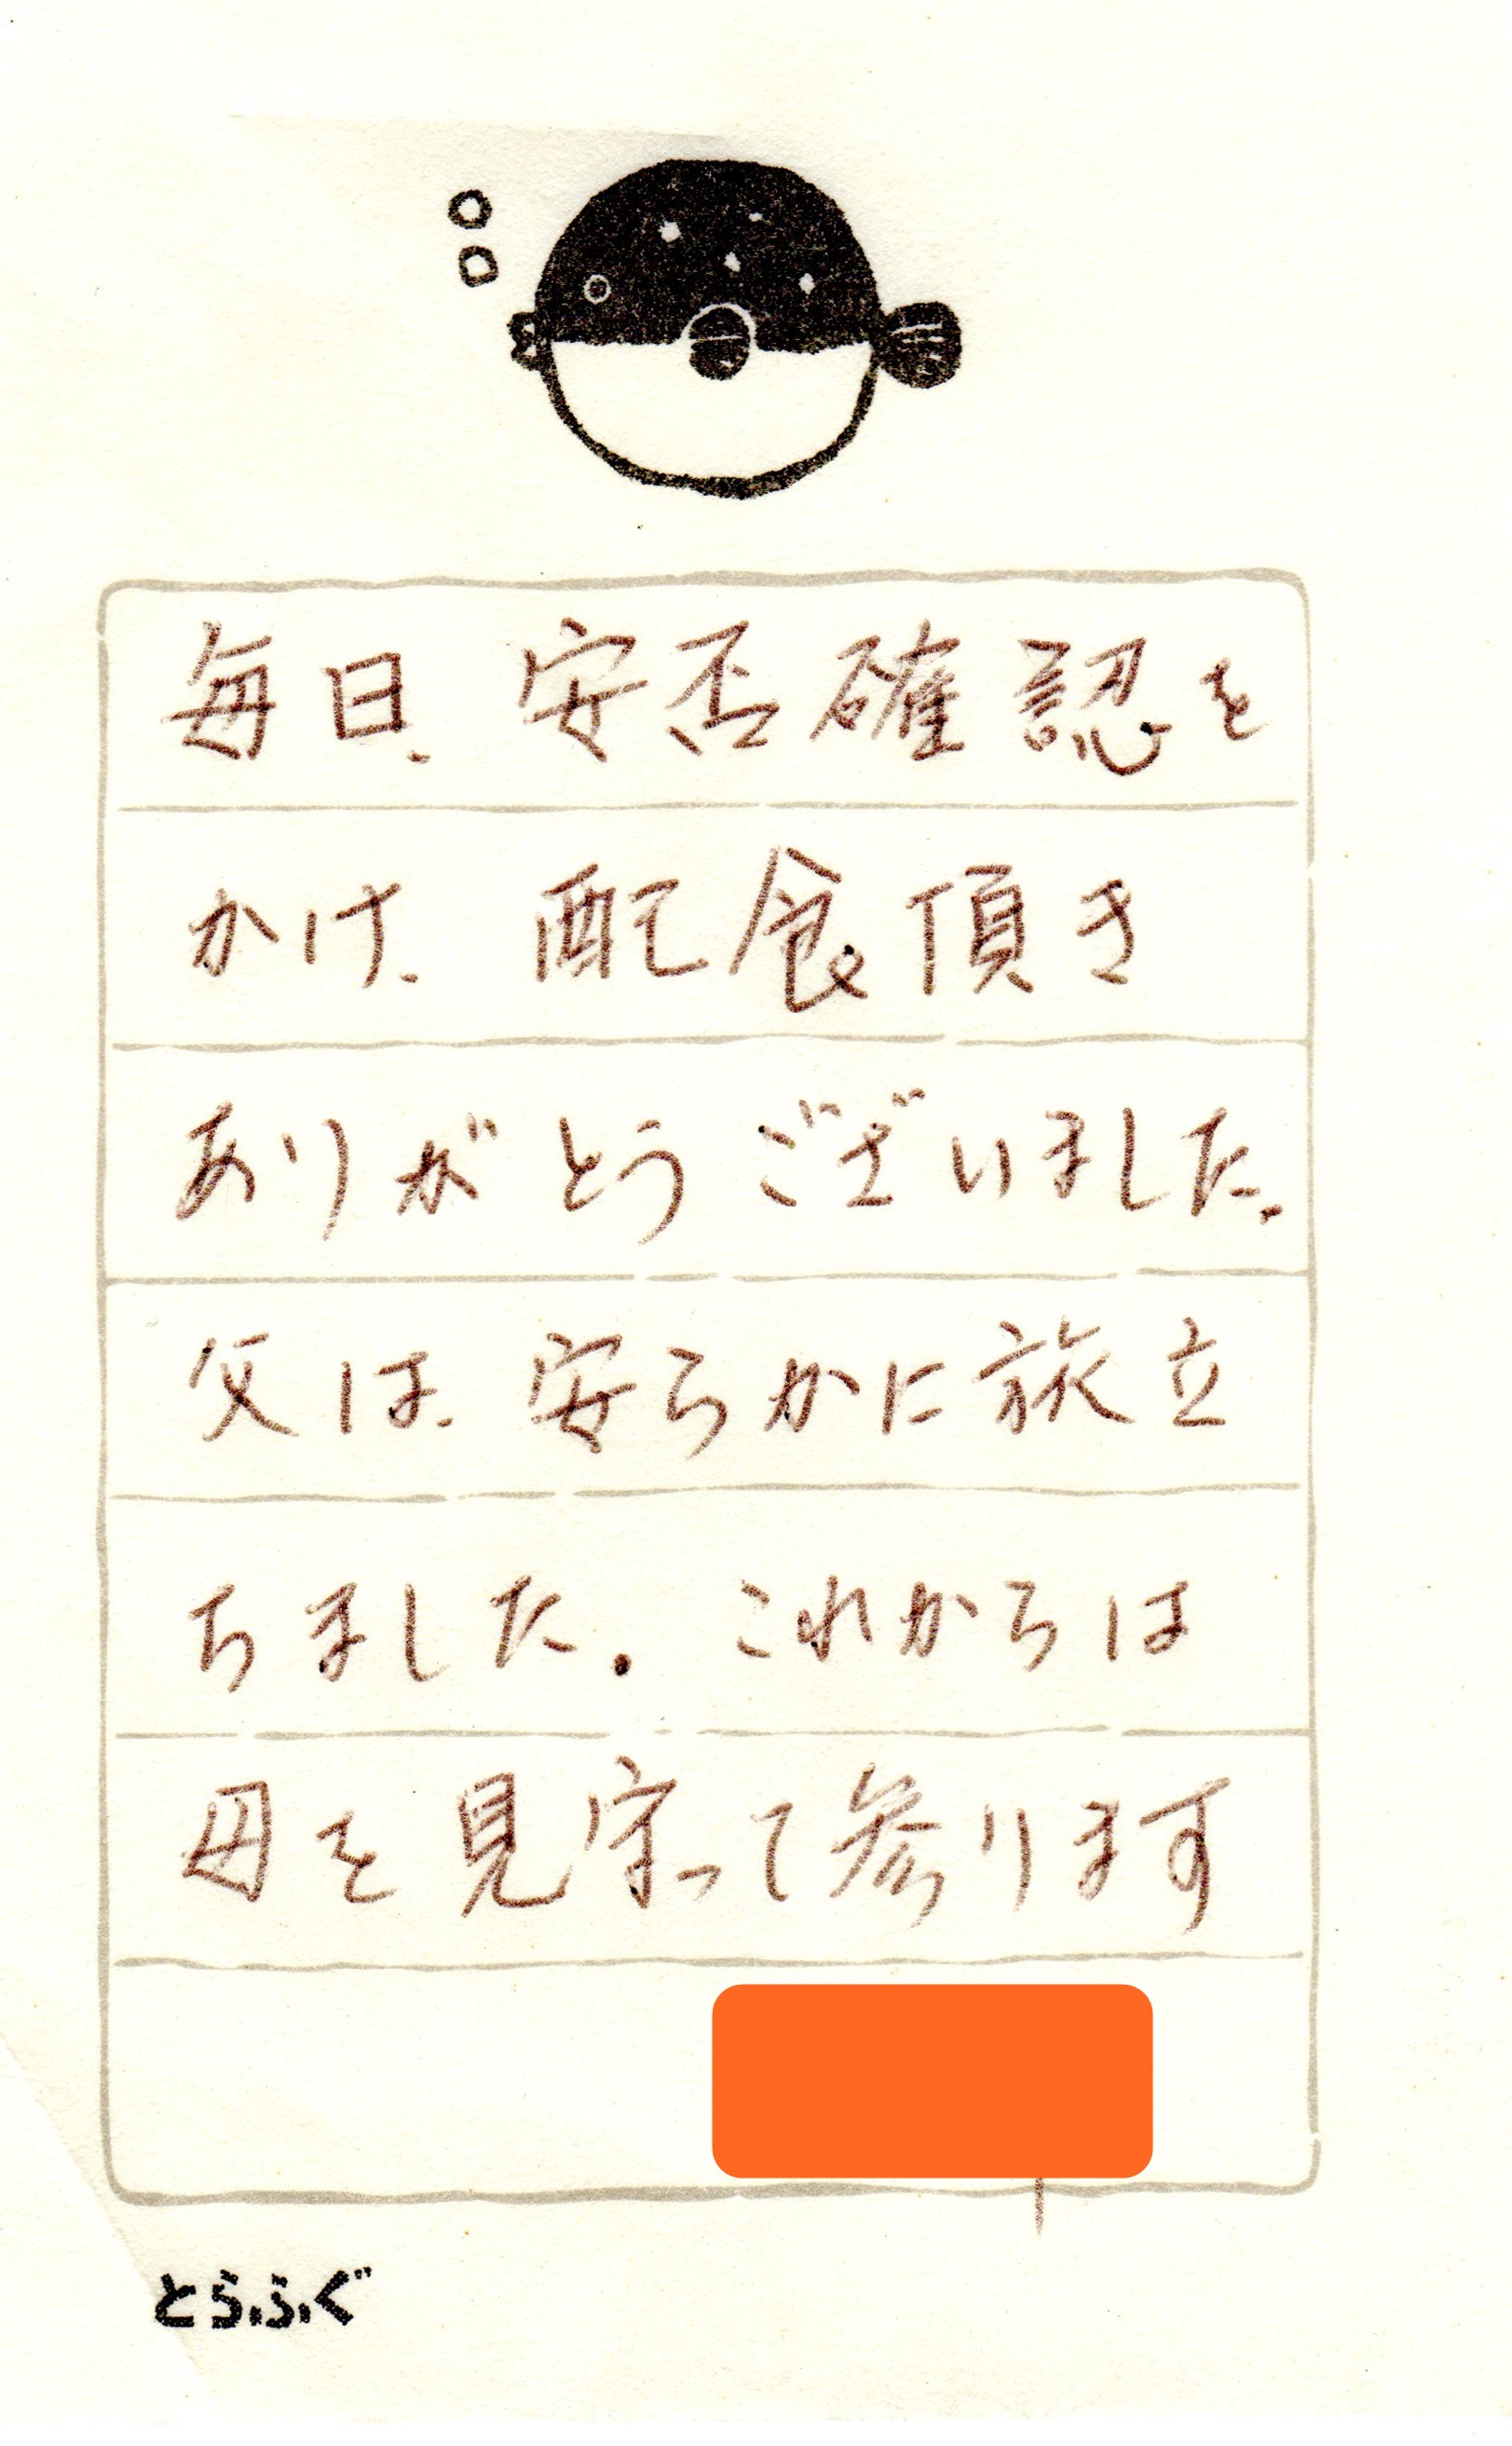 毎日、安否確認を
かけ、配食頂き
ありがとうございました。
父は、安らかに旅立
ちました。これからは
母を見守って参ります
とらふぐ